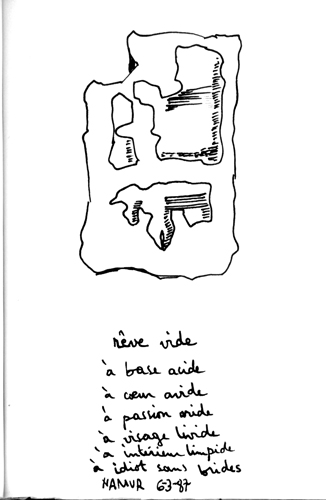 rêve vide
à base acide
à cœur avide
à passion aride
à visage livide
à intérieur limpide
à idiot sans brides
6-3-87